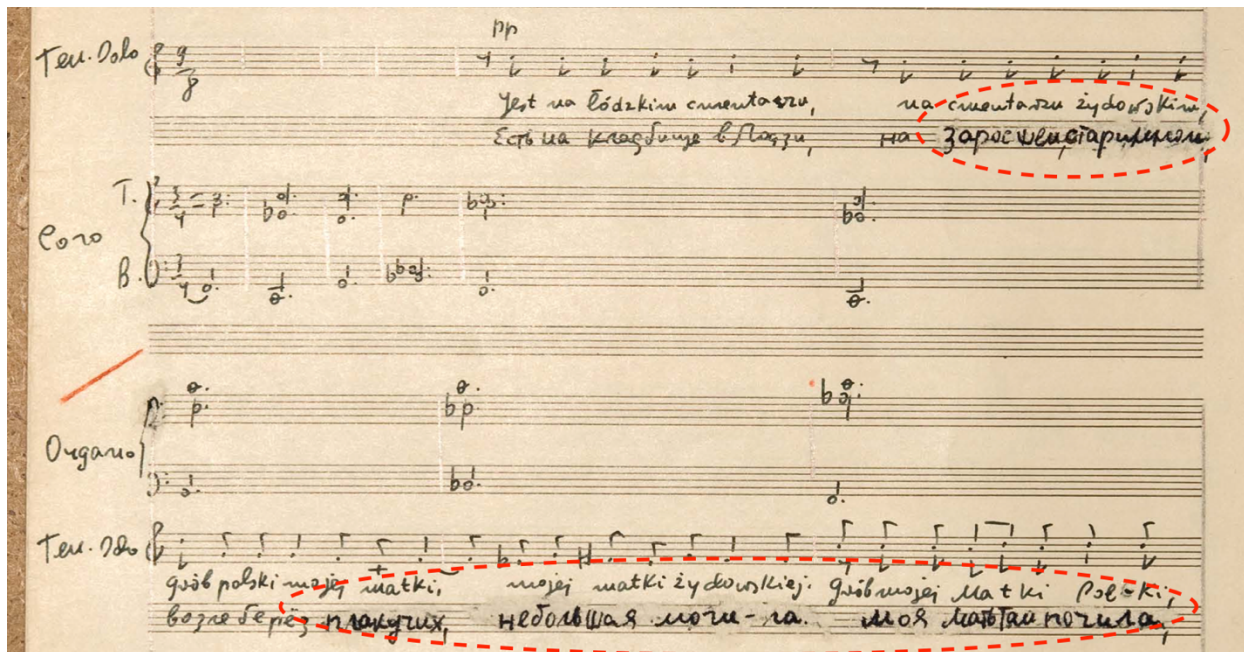 pp
Ten. Solo 9/8
Jest na łódzkim cmentarzu, na cmentarzu żydowskim,
Есть на кладбище в Лодзи, на заросшем, старинном,
T. 3/4
Coro
B. 3/4
Organo
Ten. Solo
grób polski mojej matki, mojej matki żydowskiej. grób mojej Matki Pol-ki,
возле берёз плакучих, небольшая моги-ла. моя мать там почила,